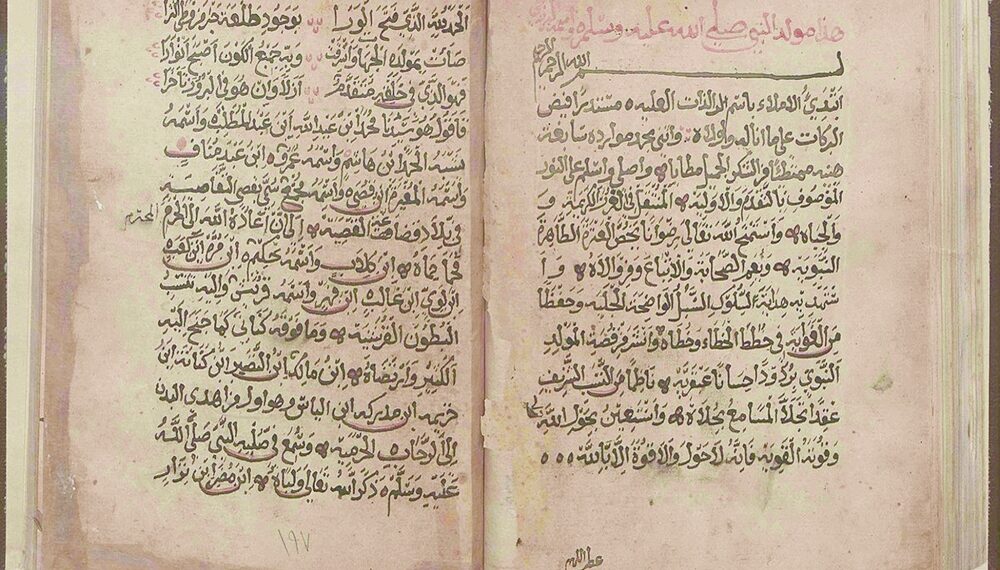 هذا مولد النبي صلى الله عليه وسلم
بسم الله الرحمن الرحيم
ابتدئ الاملاء باسم الذات العليه مستدرا فيض
البركات على ما اناله واولاه واثني بحمد موارده سايغة
هنيه ممتطيا من الشكر الجميل مطاياه واصلي واسلم على النور
الموصوف بالتقدم والاوليه المنتقل في الغرر الكريمه و
والجباه واستمنح الله تعالى رضوانا يخص العترة الطاهرة
النبويه ويعم الصحابة والاتباع ومن والاه وا
ستجديه هداية لسلوك السبل الواضحة الجليه وحفظا
من الغوايه في خطط الخطاء وخطاه وانشر من قصة المولد
النبوي برودا حسانا عبقريه ناظما من النسب الشريف
عقدا تحلا المسامع بحلاه واستعين بحول الله
وقوته القويه فانه لا حول ولا قوة الا بالله
عطر اللهم
الحمد لله الذي فتح الورا بوجود طلعة
وبه جميع الكون اصبح انوارا
فهو الذي في خلقه متقدم ازلا وان هو في البروز تاخرا
فاقول هو سيدنا محمد ابن عبد الله ابن عبد المطلب واسمه
شيبة الحمد ابن هاشم واسمه عمرو ابن عبد مناف
واسمه المغيرة ابن قصي واسمه مجمع سمي بقصي لتقاصيه
في بلاد قضاعة القصيه الى ان اعاده الله الى الحرم
المحترم
فحما حماه ابن كلاب واسمه حكيم ابن مرة ابن كعب
ابن لوي ابن غالب ابن فهر واسمه قريش واليه تنتسب
البطون القرشيه وما فوقه كناني كما جنح اليه
الكثير وارتضاه ابن مالك ابن النضر ابن كنانة ابن
خزيمه ابن مدركه ابن الياس وهو اول من اهدى البدن
الى الرحاب الحرميه وسمع في صلبه النبي صلى الله
عليه وسلم ذكر الله تعالى ولباه ابن مضر ابن نزار
١٩٧